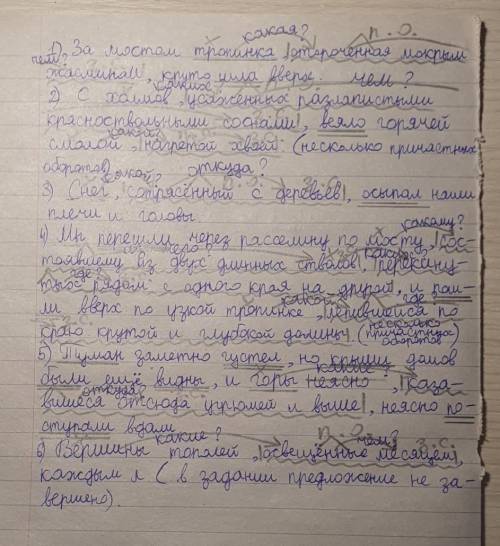 какая? п.о.
1) За мостом тропинка, отороченная мокрым
чем?
жасмином, круто шла вверх. чем?
каких?
2) С холмов, усаженных разлапистыми
красноствольными соснами, веяло горячей
какой?
смолой, нагретой хвоей (несколько причастных
оборотов) какой? откуда?
3) Снег, сотрясённый с деревьев, осыпал наши
плечи и головы. какому?
4) Мы перешли через расселину по мосту, сос-
из чего?
тоявшему из двух длинных стволов, перекину-
где?
тых рядом с одного края на другой, и пош-
какой? где?
ли вверх по узкой тропинке, лепившейся по
несколько
краю крутой и глубокой долины. (причастных
оборотов)
5) Туман заметно густел, но крыши домов
какие?
были ещё видны, и горы неясно, каза-
откуда?
вшиеся отсюда угрюмей и выше, неясно по-
ступали вдали.
какие? п.о. чем? з.с.
6) Вершины тополей, освещённые месяцем,
каждым л (в задании предложение не за-
вершено).